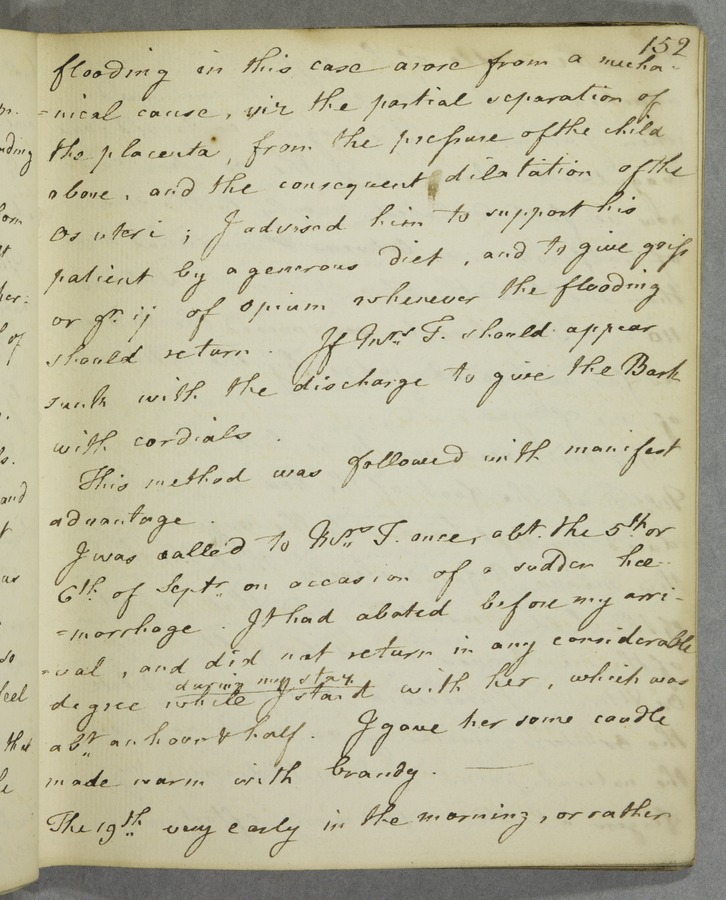 152
flooding in this case arose from a mecha-
=nical cause, viz the partial separation of
the placenta, from the pressure of the child
above, and the consequent dilatation of the
os uteri; I advised him to support his
patient by a generous diet, and to give gr iss
or gr. ij of opium whenever the flooding
should return. If Mrs. T. should appear
sunk with the discharge to give the Bark
with cordials.
This method was followed with manifest
advantage.
I was called to Mrs T. once, abt. the 5th or
6th of Septr. on occasion of a sudden hæ-
=morrhage. It had abated before my arri-
=val, and did not return in any considerable
during my stay
degree while I staid with her, which was
abt an hour & half. I gave her some caudle
made warm with brandy.
The 19th very early in the morning, or rather